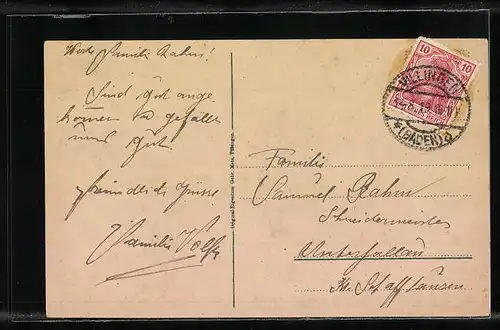 Werte Familie Rahm!
Sind gut ange
kommen es gefällt
uns gut.
freundliche Grüsse
Familie Volk
Original-Eigentum Gebr. Metz, Tübingen.
10 10
VILLINGEN
(BADEN)
Familie
Samuel Rahm
Schneidermeister
Unterhallau
Kt. Schaffhausen